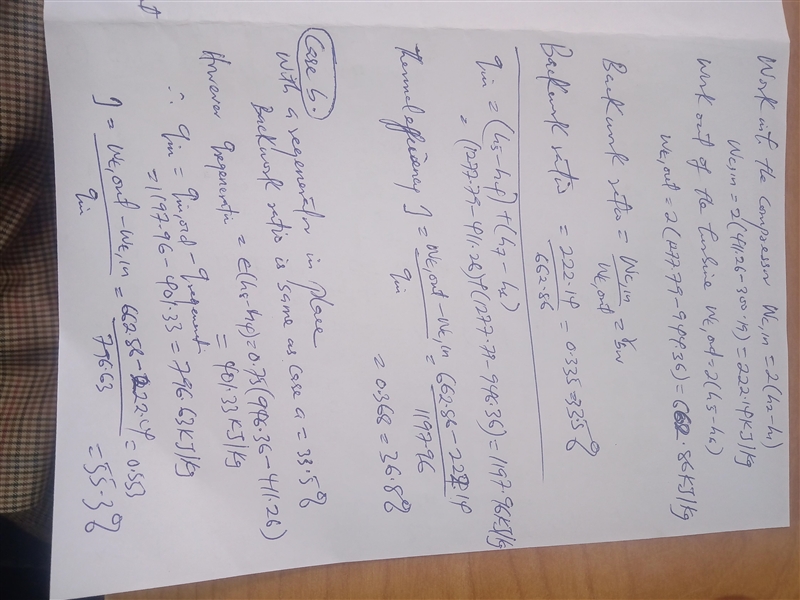 Work into the compressor Wc,in = 2(h2-h1)
Wc,in = 2(411.26-300.19)=222.14KJ/kg
Work out of the turbine Wt,out=2(h5-h6)
Wt,out = 2(1277.79-946.36)=662.86KJ/kg
Backwork ratio = Wc,in / Wt,out =
Backwork ratio = 222.14 / 662.86 = 0.335=33.5%
qin = (h5-h4)+(h7-h6)
= (1277.79-411.26)+(1277.79-946.36)=1197.96KJ/kg
Thermal efficiency η = Wt,out - Wc,in / qin = 662.86-222.14 / 1197.96
= 0.368 = 36.8%
Case b.
With a regenerator in place
Backwork ratio is same as case a = 33.5%
However qregenerator = ϵ(h8-h4)=0.75(946.36-411.26)
= 401.33KJ/kg
∴ qin = qin,old - qregenerat
=1197.96-401.33=796.63KJ/kg
η = Wt,out - Wc,in / qin = 662.86-222.14 / 796.63 = 0.553
= 55.3%